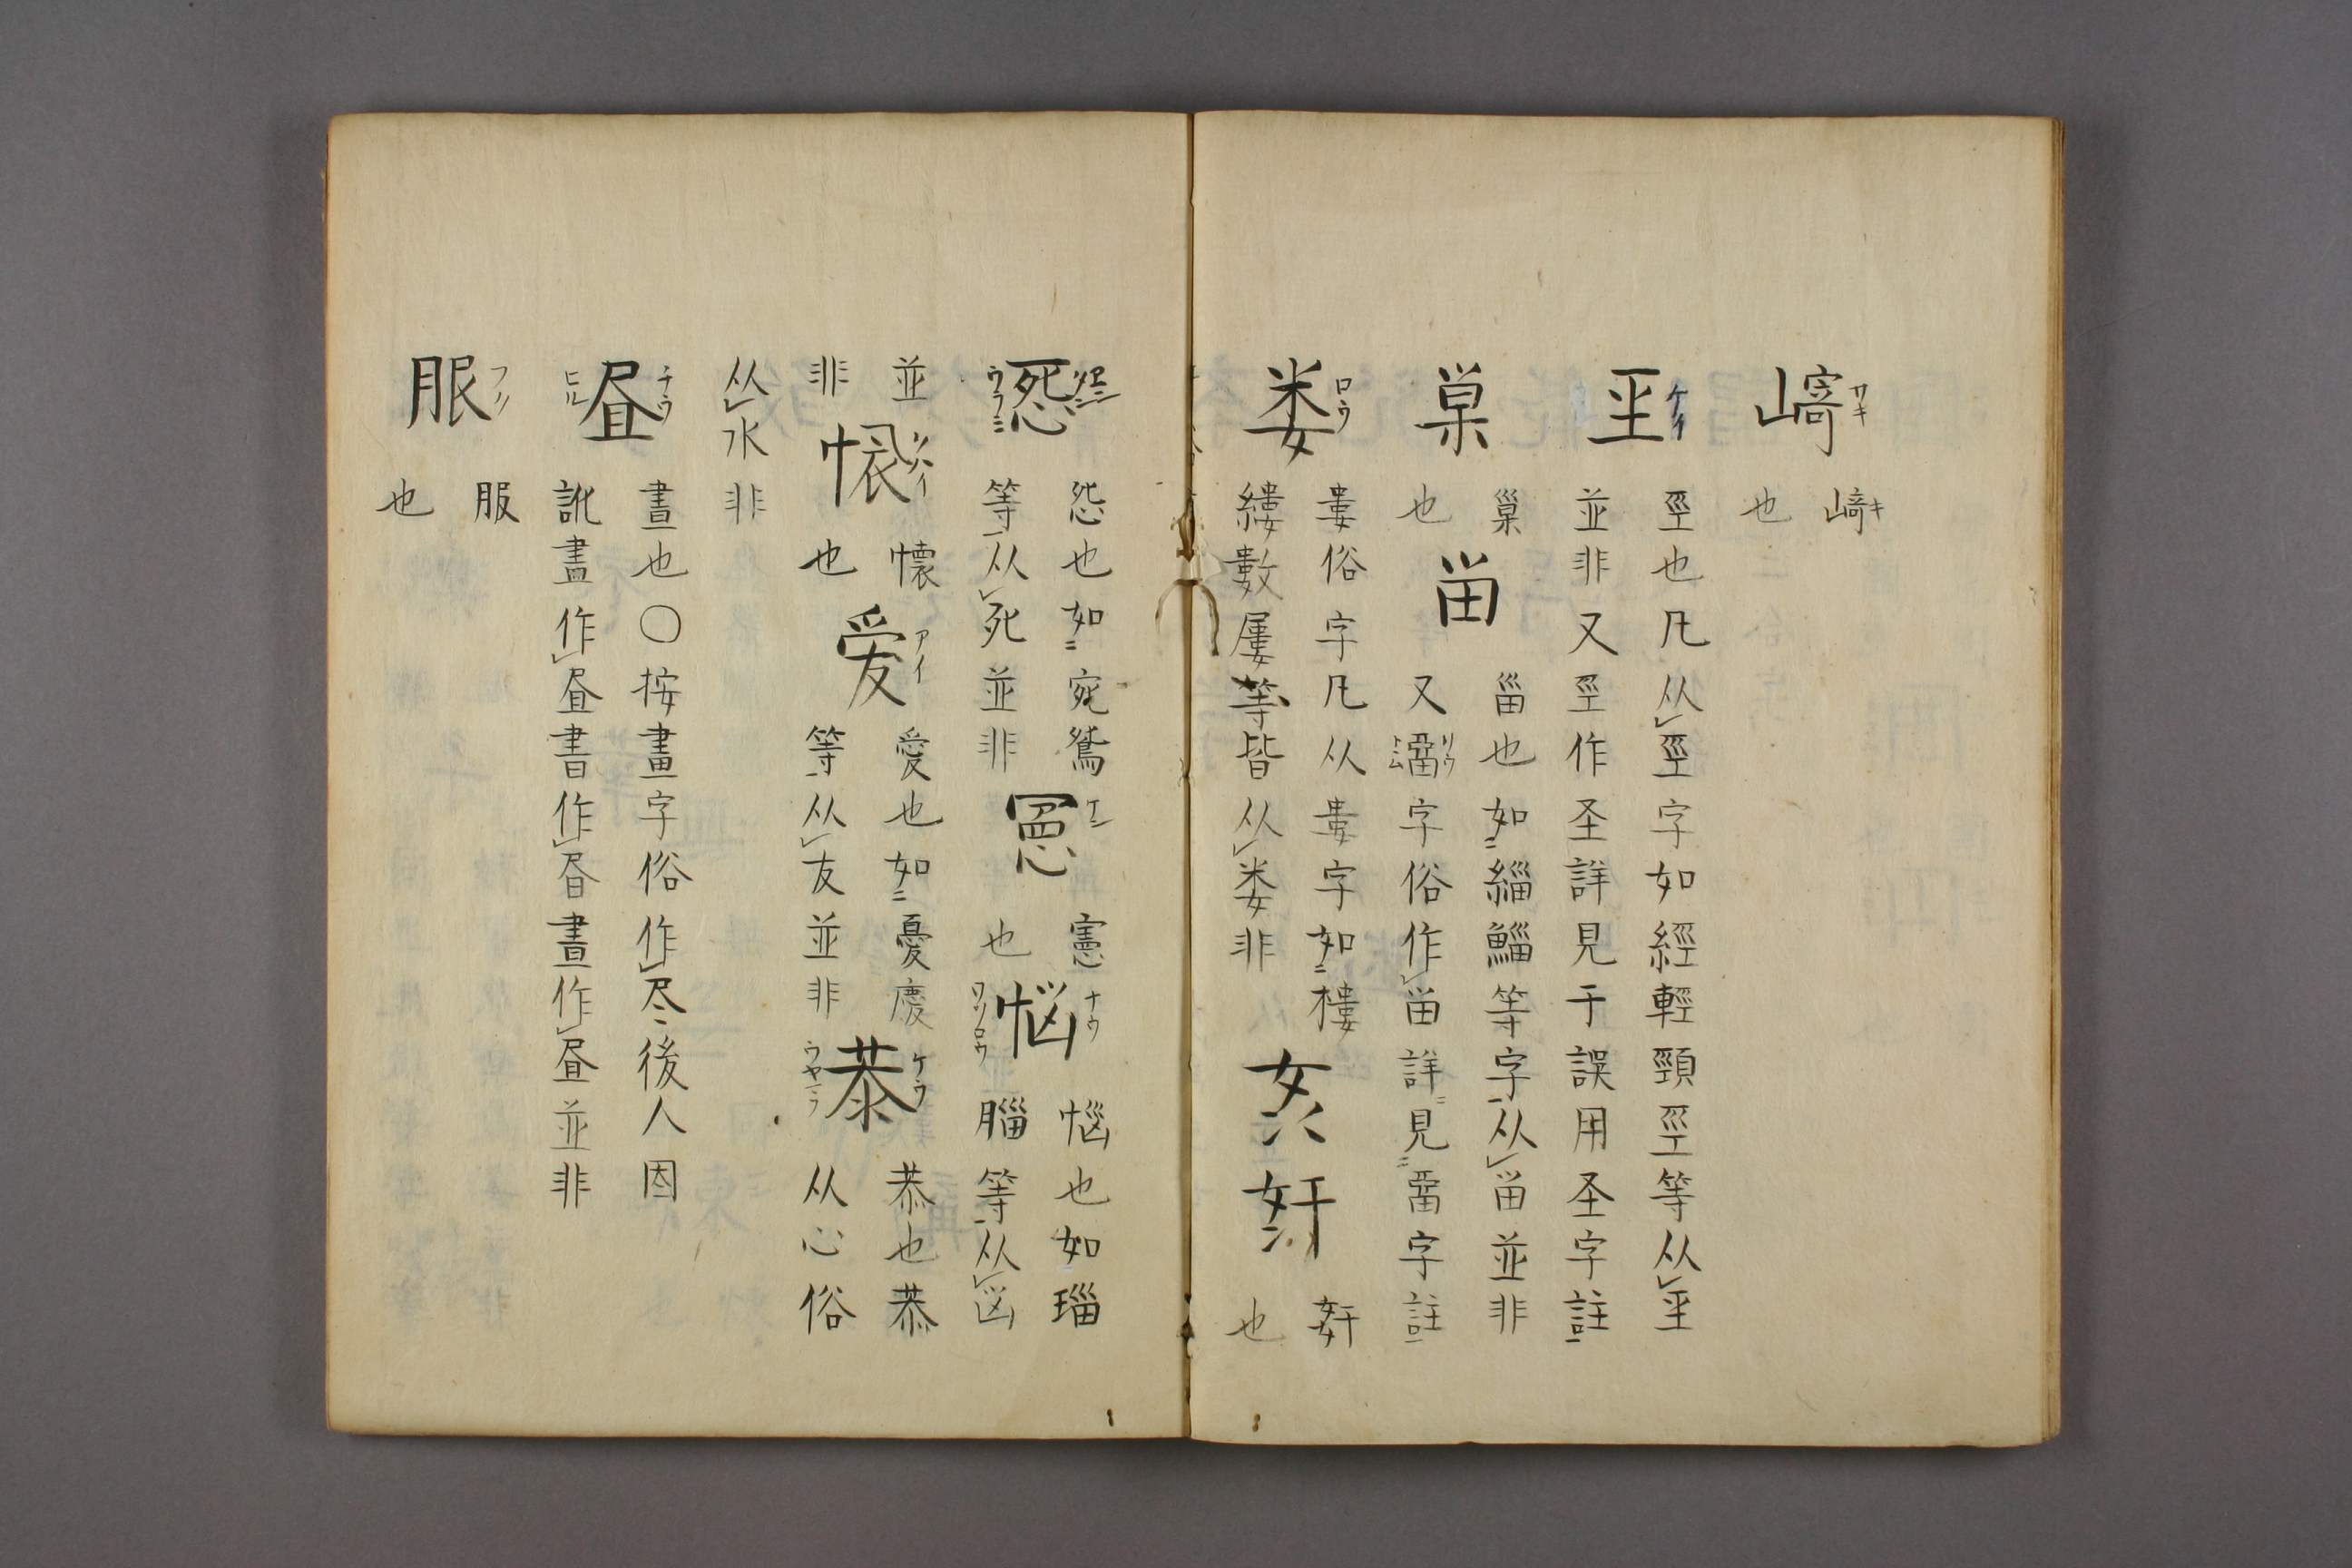 崎
也
巠也凡从巠字如經輕頸巠等从𢀖
並非又巠作圣詳見于誤用圣字註
巢 巣
也 甾 甾也如緇鯔等字从甾並非
又畱字俗作甾詳見畱字註
娄 ロウ 婁俗字凡从婁字如樓
縷數屢等皆从娄非
奸
也
怨也如宛鴛
等从死並非
ウラミ
憲
也
悩 ナウ
惱也如瑙
腦等从𡿺
並
非
懐 懷
也
愛 アイ 愛也如憂慶
等从友並非
恭 恭也恭
从心俗
从水非
昼 チウ ヒル 晝也〇按畫字俗作尽後人因
訛盡作昼書作昼晝作昼並非
服 服
也